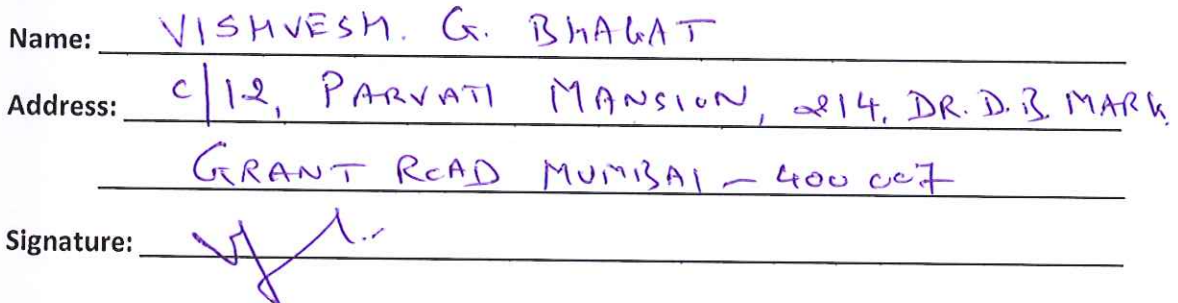 Name: VISHVESH. G. BHAGAT
Address: C/12, PARVATI MANSION, 214, DR. D. B. MARG
GRANT ROAD MUMBAI - 400 007
Signature: